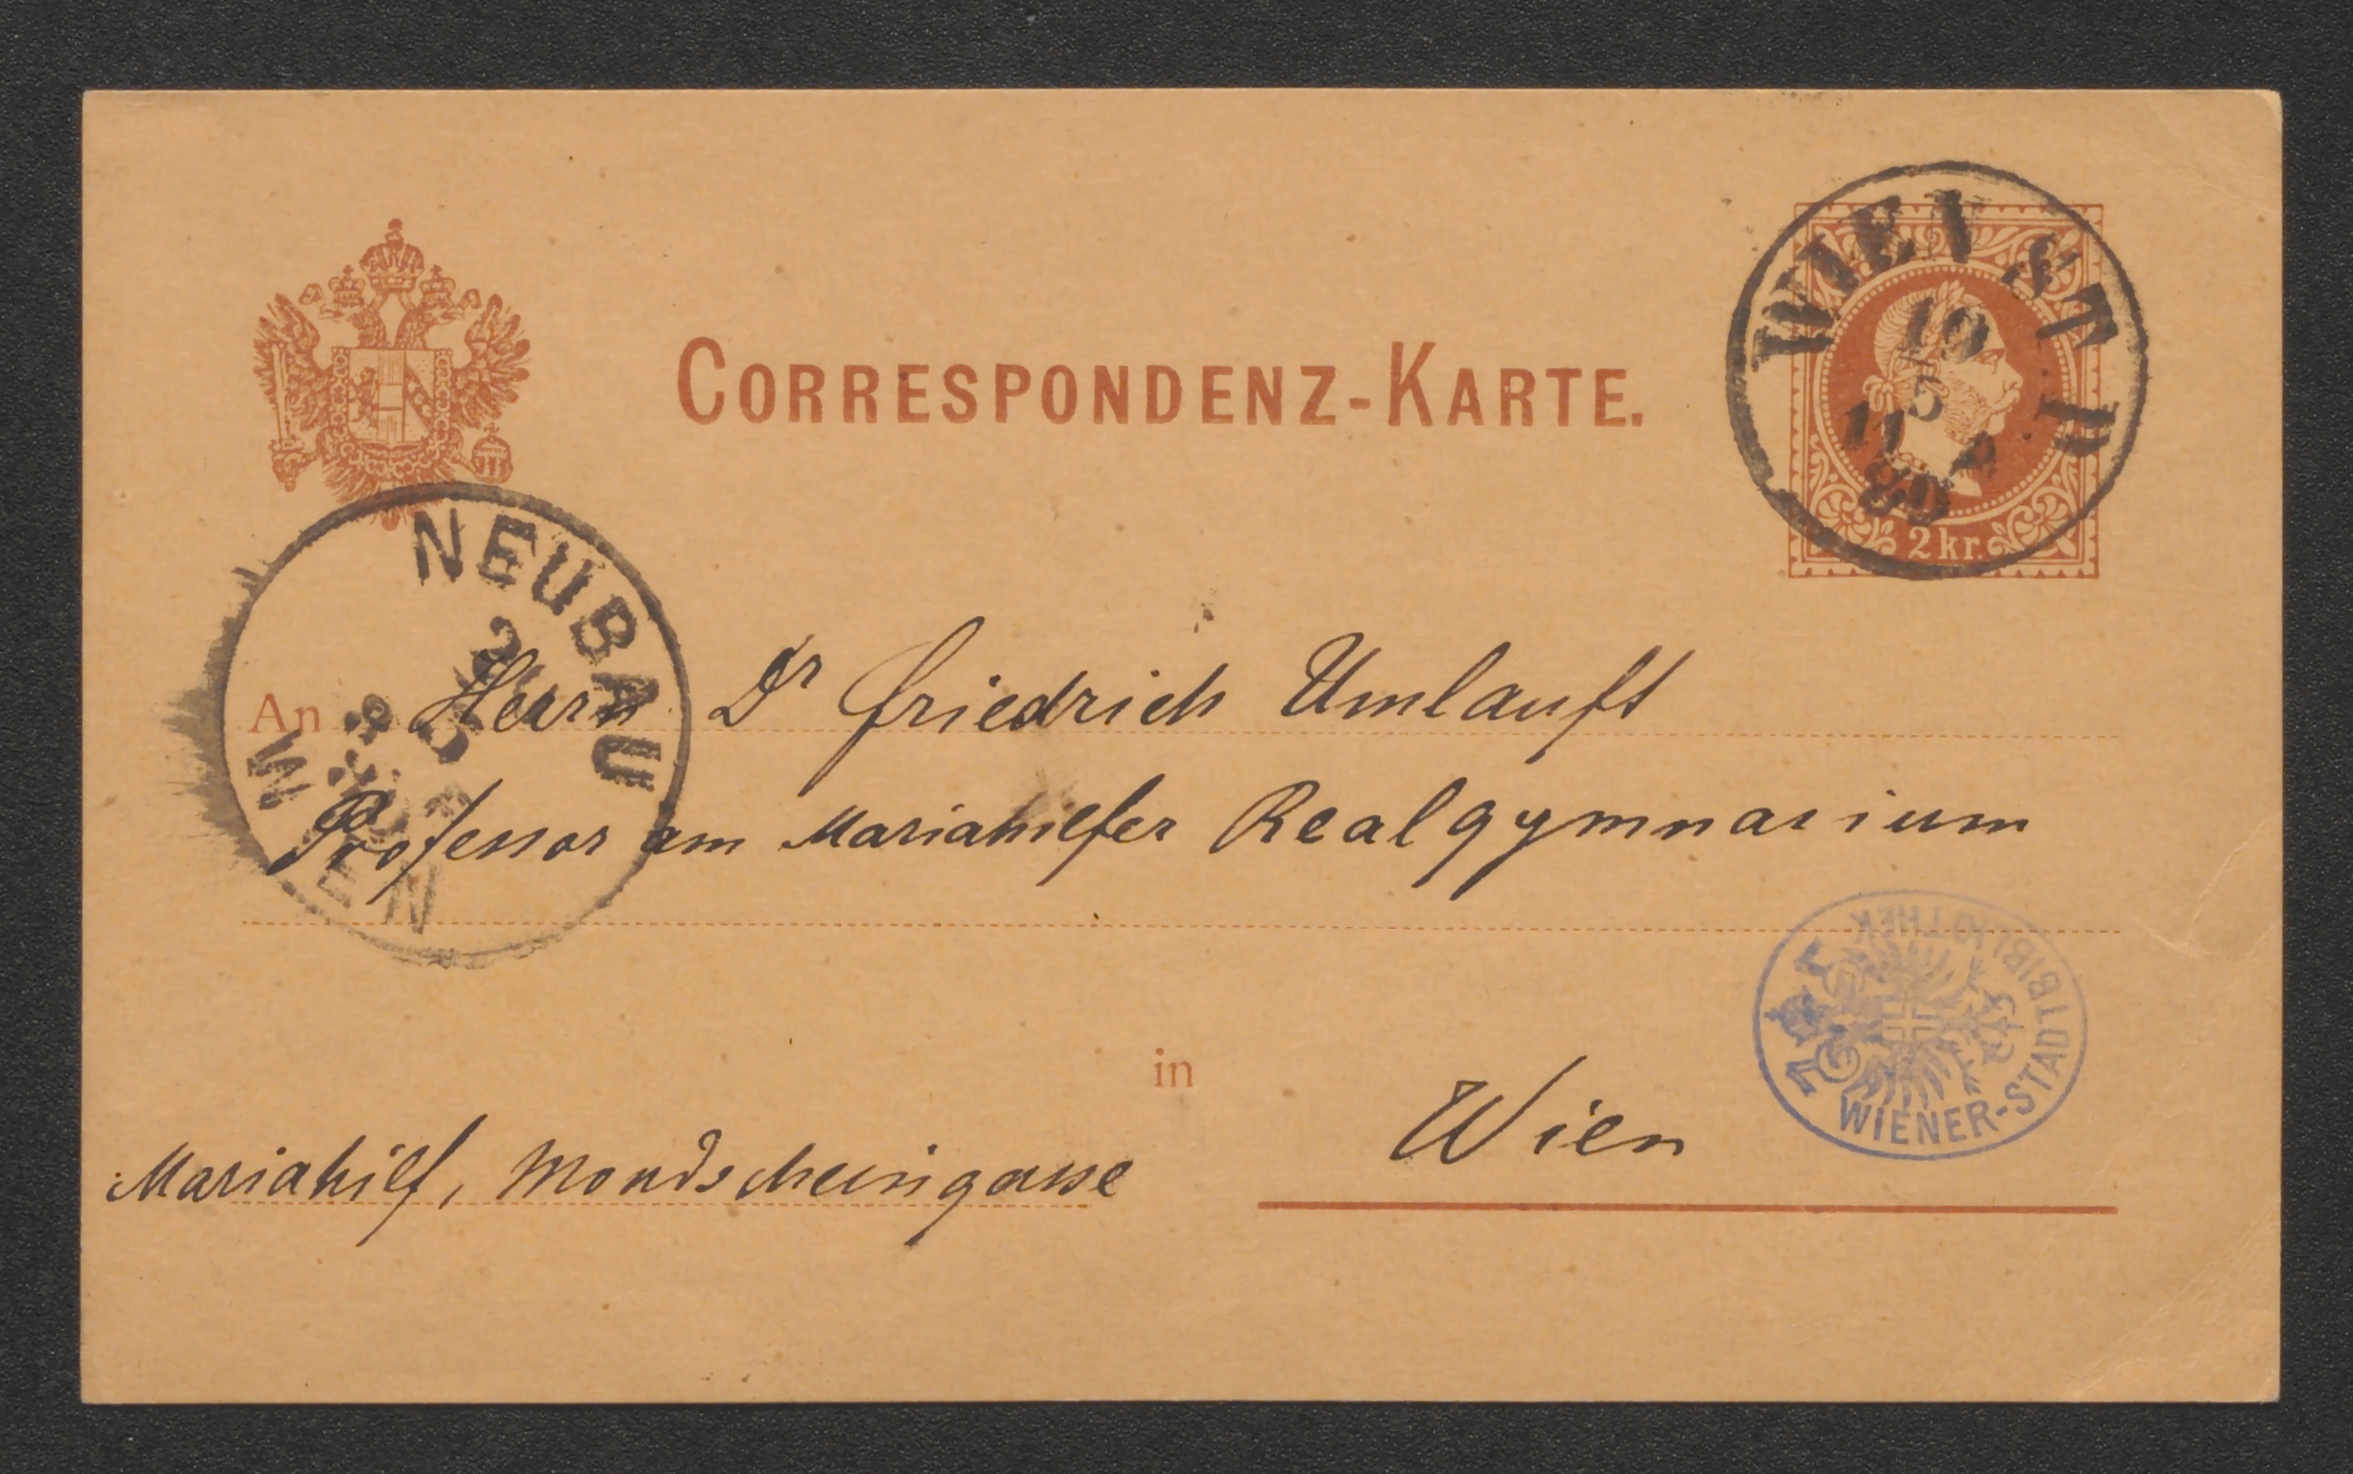 CORRESPONDENZ-KARTE.
WIEN ST. P.
19
5
11 A
80
2 kr.
NEUBAU
WIEN
An Herrn Dr Friedrich Umlauft
Professor am Mariahilfer Realgymnasium
WIENER-STADTBIBLIOTHEK
in Wien
Mariahilf, Mondscheingasse